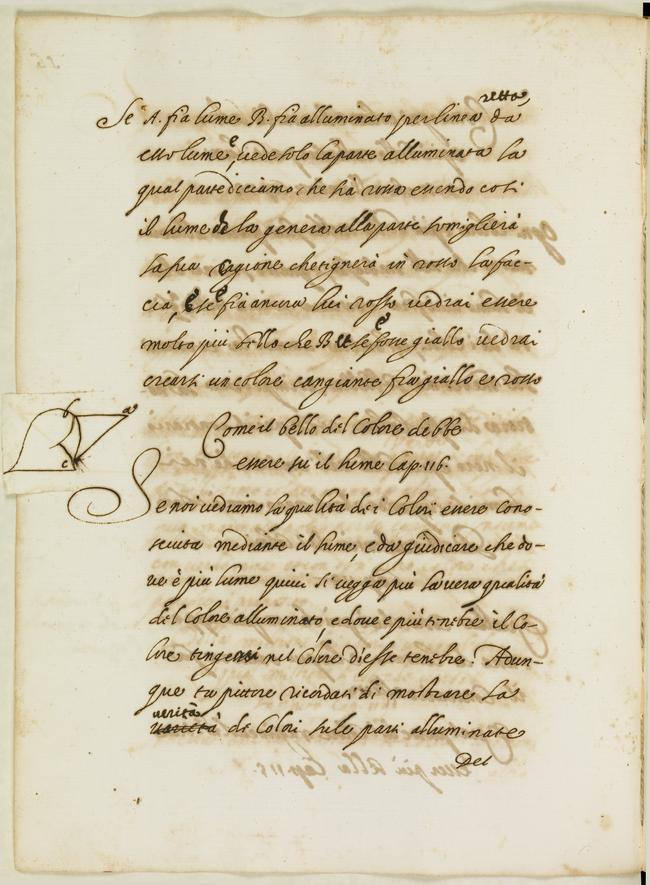 retta,
Se A. fia lume B. fia alluminato per linea da
esso lume, è uede solo la parte alluminata la
qual parte diciamo che sia rossa essendo così
il lume de la genera alla parte somiglierà
la sua cagione che tignerà in rosso la fac-
cia, è se fia ancora lui rosso uedrai essere
molto più bello che B et se fosse giallo uedrai
crearsi un colore cangiante fra giallo e rosso
b a
c
Come il bello del Colore debbe
essere su il lume Cap. 116.
Se noi uediamo la qualità dei Colori essere cono-
sciuta mediante il lume, e da giudicare che do-
ue è più lume quiui si uegga più la uera qualità
del Colore alluminato, e doue e più tenebre il Co-
lore tingersi nel Colore di esse tenebre. Adun-
que tu pittore ricordati di mostrare la
uerità
uarietà de Colori su le parti alluminate
Del